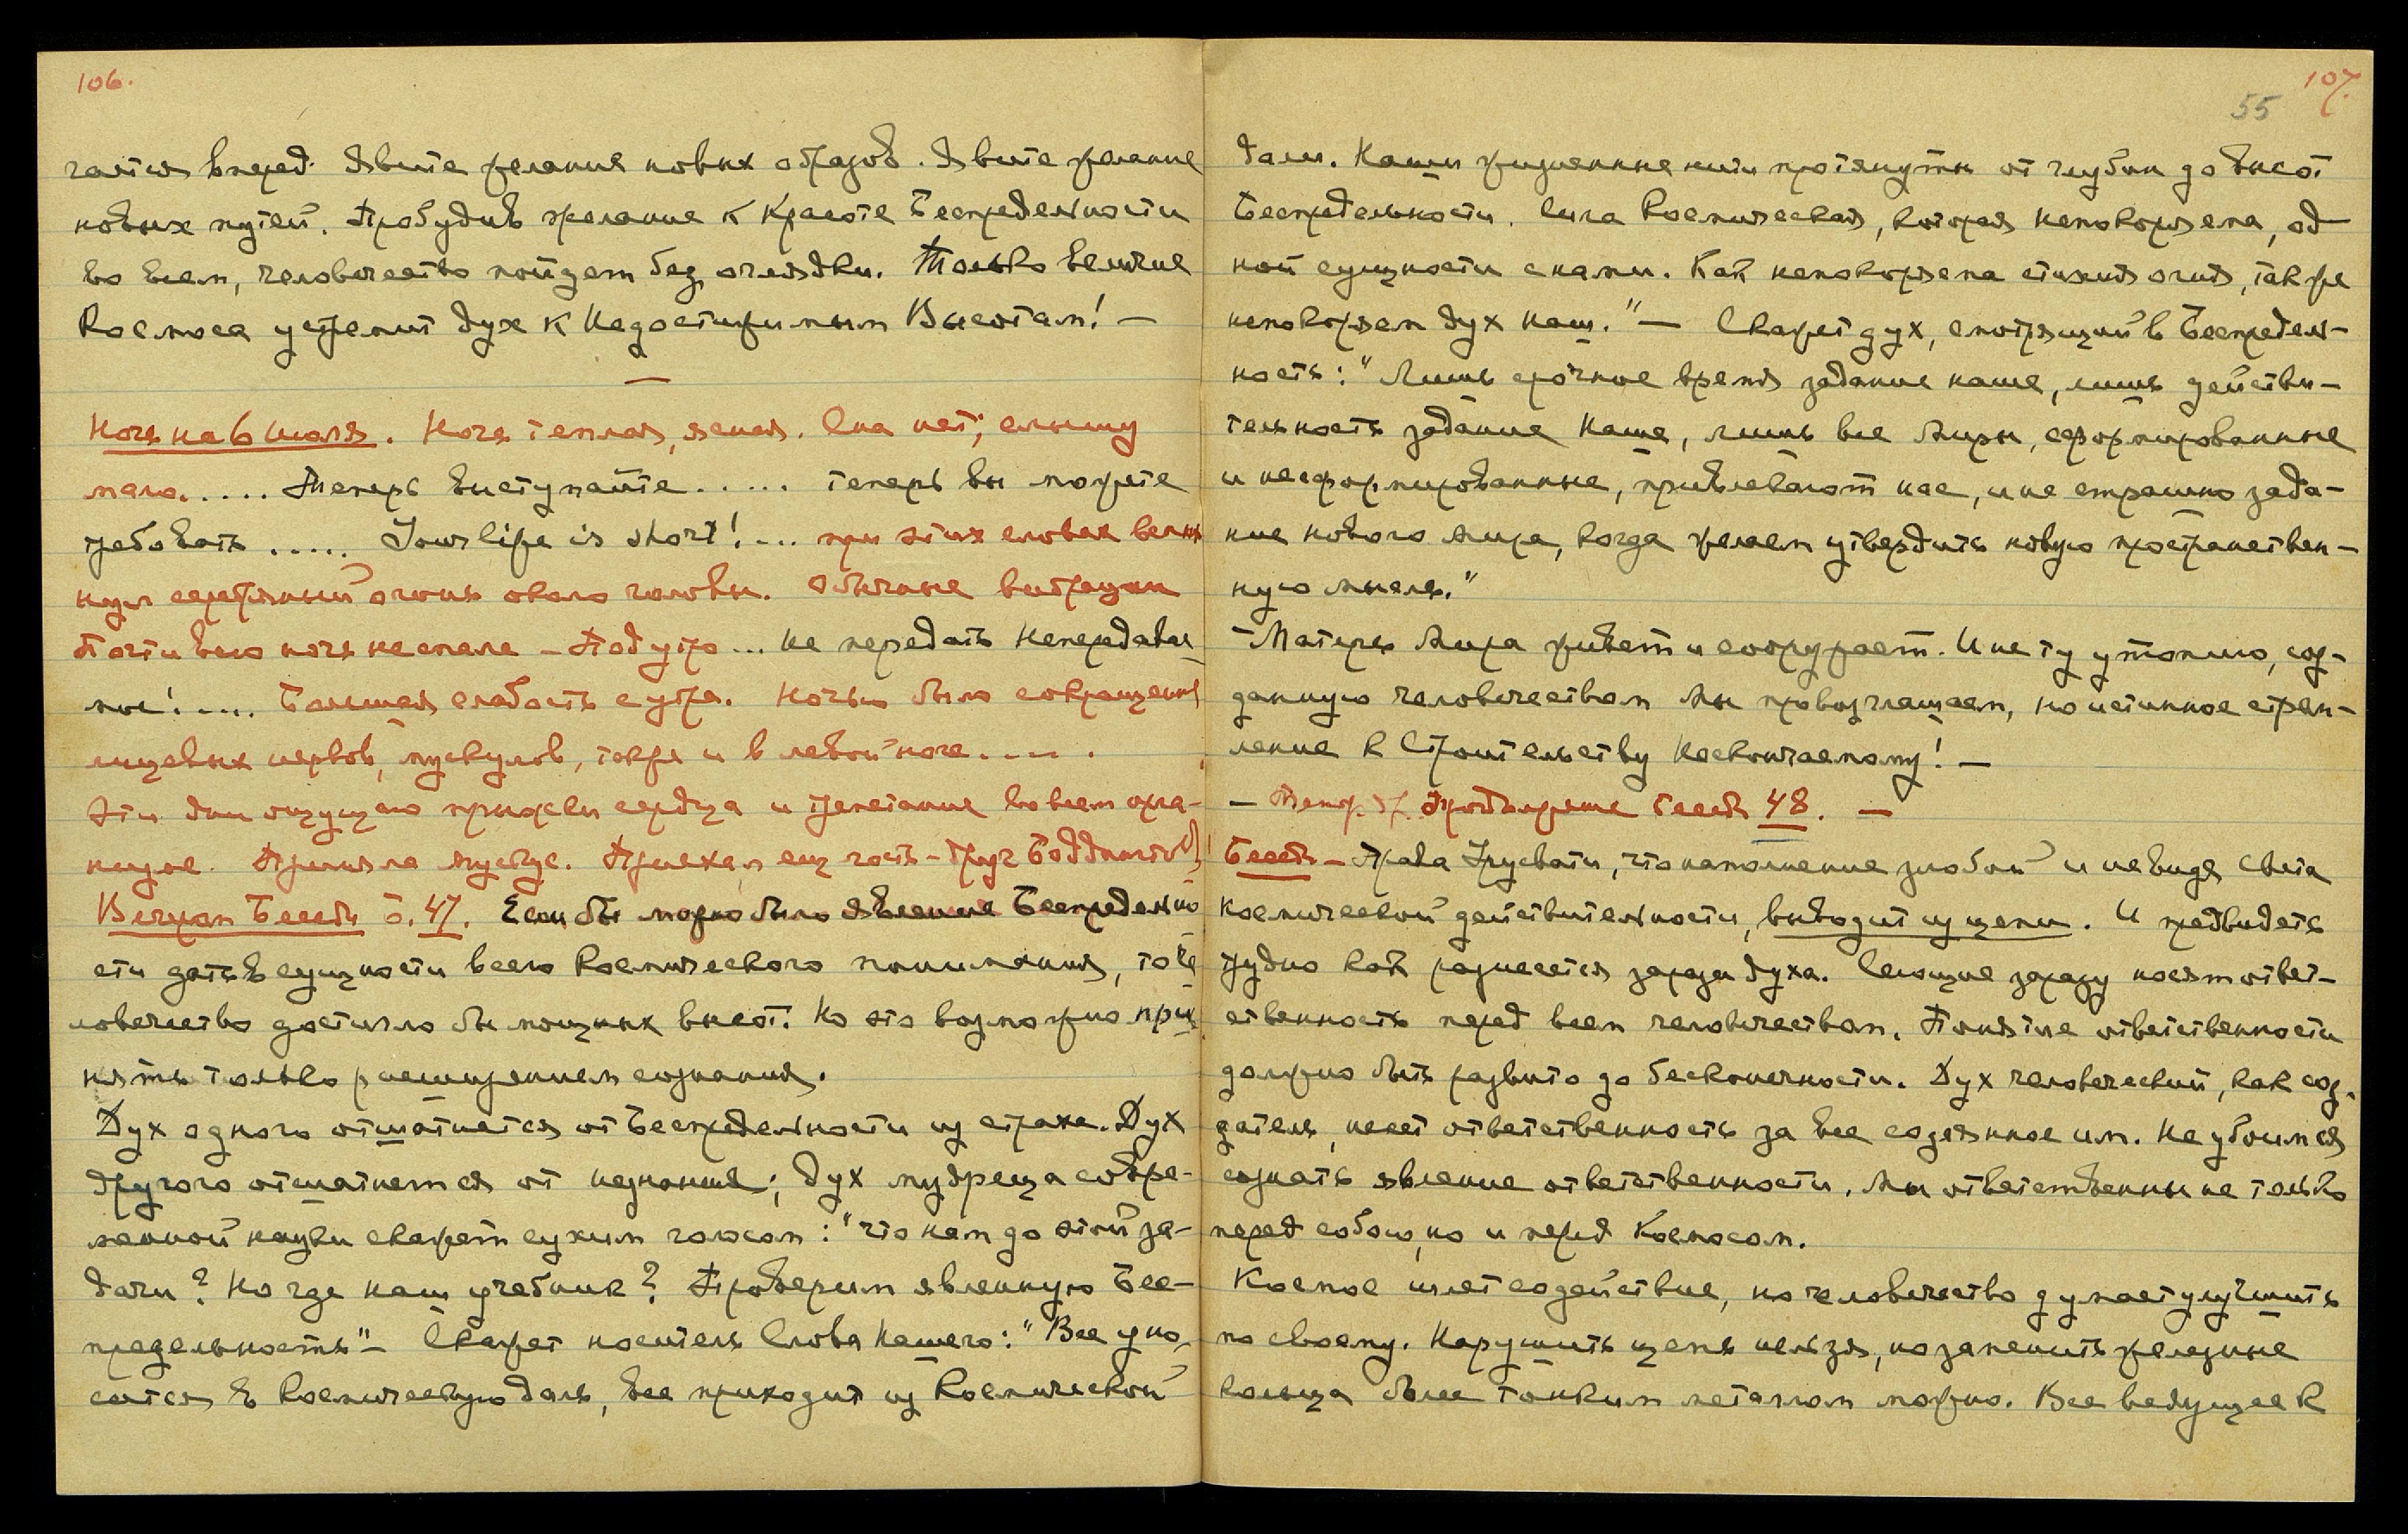 106.
чается вперед. Явите желания новых образов. Явите желание
новых путей. Пробудив желание к Красоте Беспредельности
во всем, человечество пойдет без оглядки. Только величие
Космоса устремит дух к Недостижимым Высотам! —
—
Ночь на 6 июля. Ночь теплая, ясная. Сна нет; слышу
мало..... Теперь выступайте ..... теперь вы можете
требовать ..... Your life is short! ... при этих словах вспых-
нул серебряный огонь около головы. Обычные вибрации
Почти всю ночь не спала – Под утро ... Не передать Непередавае-
мое! .... Большая слабость с утра. Ночью было сокращение
лицевых нервов, мускулов, также и в левой ноге .... .
Эти дни ощущаю приливы сердца и трепетание во всем орга-
низме. Приняла мускус. Приехал еще гость – друг
Вечером Беседы б. 47. Если бы можно было явление Беспредельно-
сти дать в сущности всего Космического понимания, то че-
ловечество достигло бы мощных высот. Но это возможно при-
нять только расширением сознания.
Дух одного отшатнется от Беспредельности из страха. Дух
другого отшатнется от незнания; дух мудреца совре-
менной науки скажет сухим голосом: "что нам до этой за-
дачи? Но где наш учебник? Проверим явленную Бес-
предельность" – Скажет носитель Слова Нашего: "Все уно-
сится в Космическую даль, все приходит из Космической
107.
55
дали. Наши жизненные нити протянуты от глубин до высот
Беспредельности. Сила Космическая, которая непокоряема, од-
ной сущности с нами. Как непокоряема стихия огня, так же
непокоряем дух наш." — Скажет дух, смотрящий в Беспредель-
ность: "Лишь срочное время задание наше, лишь действи-
тельность задание Наше, лишь все Миры, сформированные
и несформированные, привлекают нас, и не страшно зада-
ние нового мира, когда желаем утвердить новую пространствен-
ную мысль."
– Матерь Мира живет и сооружает. И не ту утопию, соз-
данную человечеством мы провозглашаем, но истинное стрем-
ление к Строительству Нескончаемому! —
48. —
Беседы – Права Урусвати, что напоминание злобой и невидя света
космической действительности, выводит из цепи. И предвидеть
трудно как разнесется зараза духа. Сеющие заразу несут ответ-
ственность перед всем человечеством. Понятие ответственности
должно быть развито до бесконечности. Дух человеческий, как соз-
датель, несет ответственность за все содеянное им. Не убоимся
сознать явление ответственности. Мы ответственны не только
перед собою, но и перед Космосом.
Космос шлет содействие, но человечество думает улучшить
по своему. Нарушить цепь нельзя, но заменить железные
кольца более тонким металлом можно. Все ведущее к